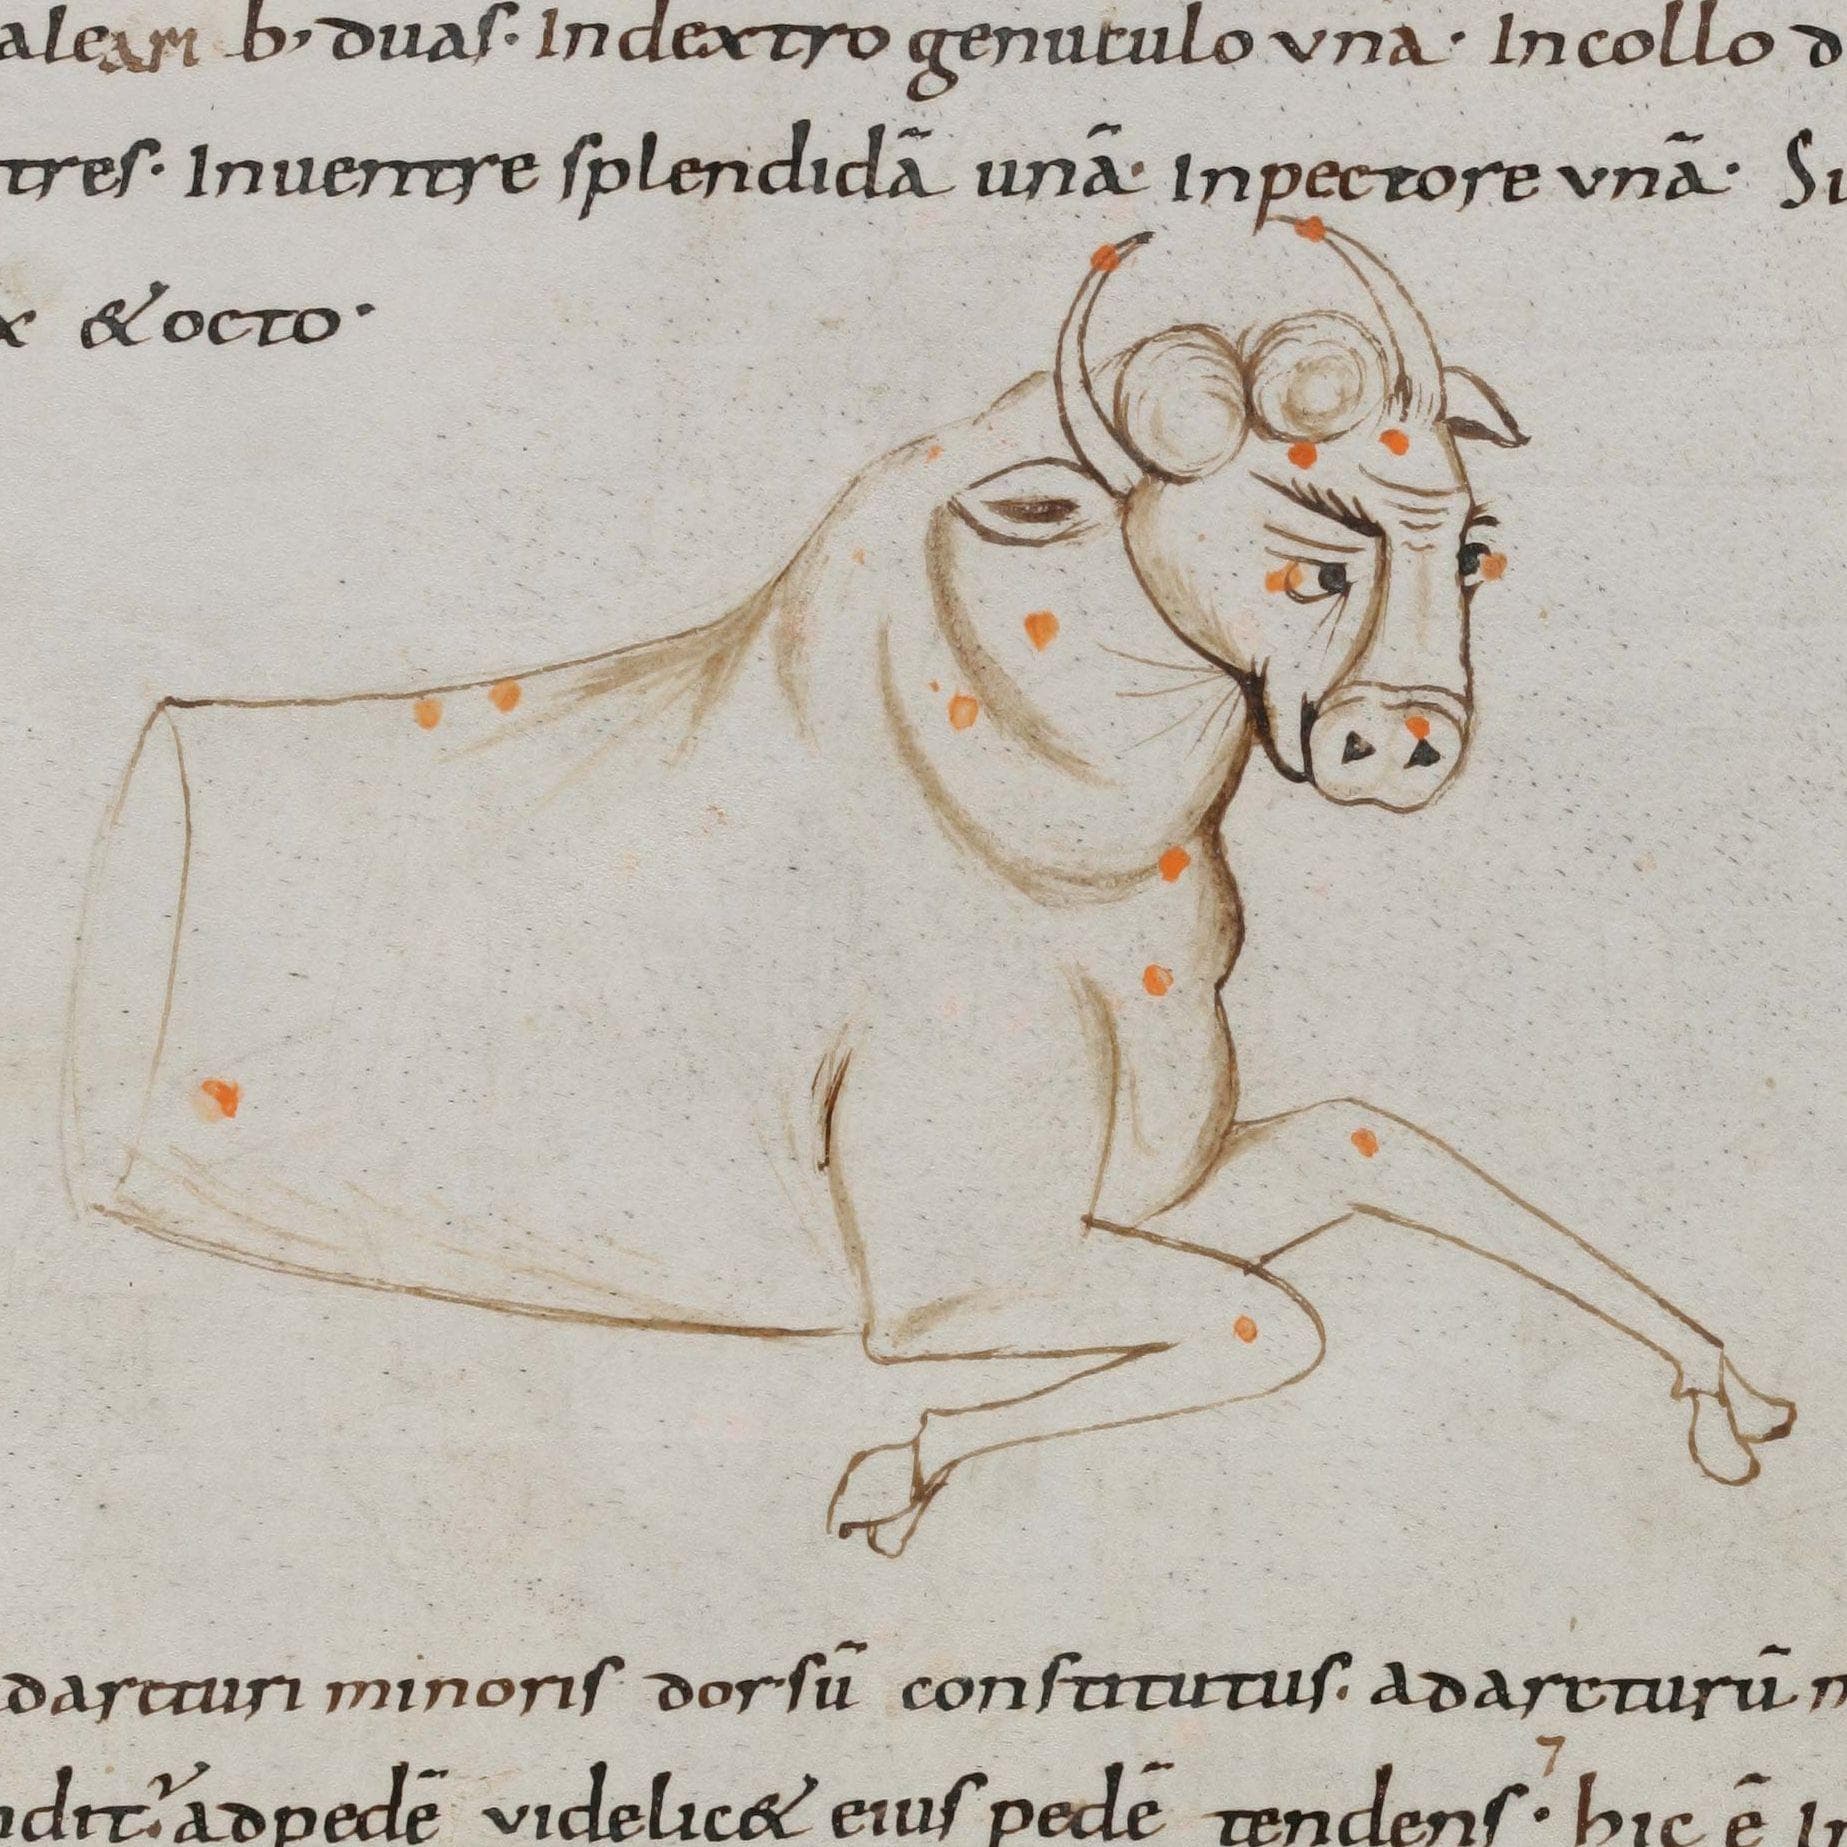 aleam b, duas. In dextro genuculo una. In collo d
tres. In uentre splendidā unā. In pectore unā. Su
x & octo.
darcturi minoris dorsū constitutus. ad arcturū m
ndit. ad pedē videlic& eius pedē tendens. hic ē In